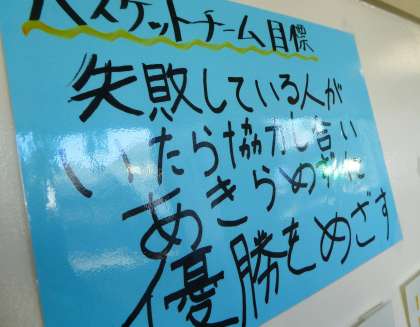 バスケットチーム目標
失敗している人が
いたら協力し合い
あきらめずに
優勝をめざす